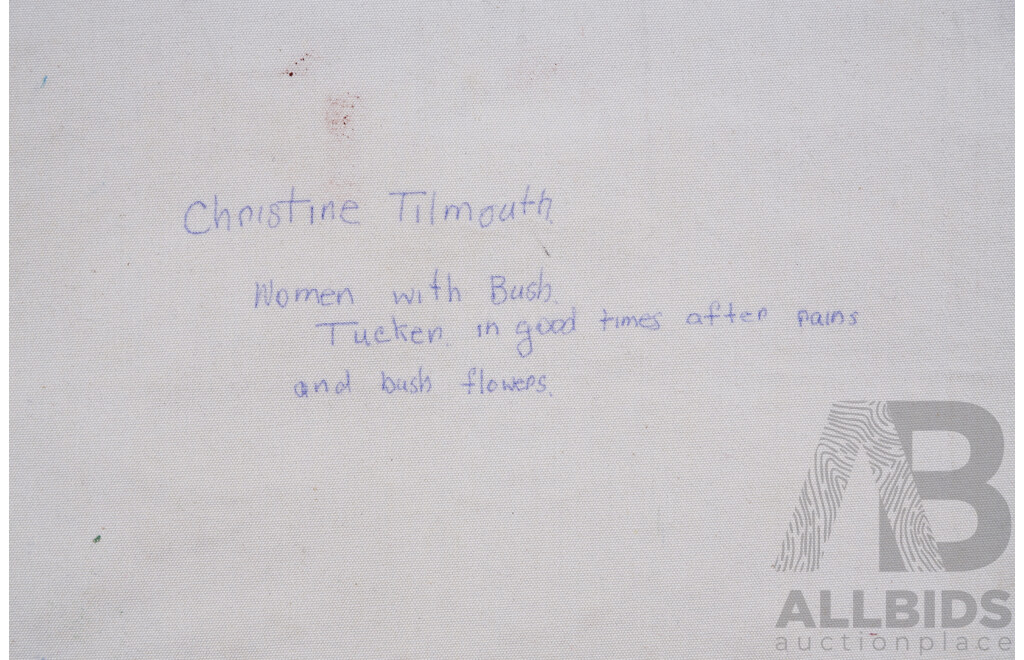 Christine Tilmouth.
Women with Bush.
Tucker. in good times after rains
and bush flowers.
AB
ALLBIDS
auctionplace